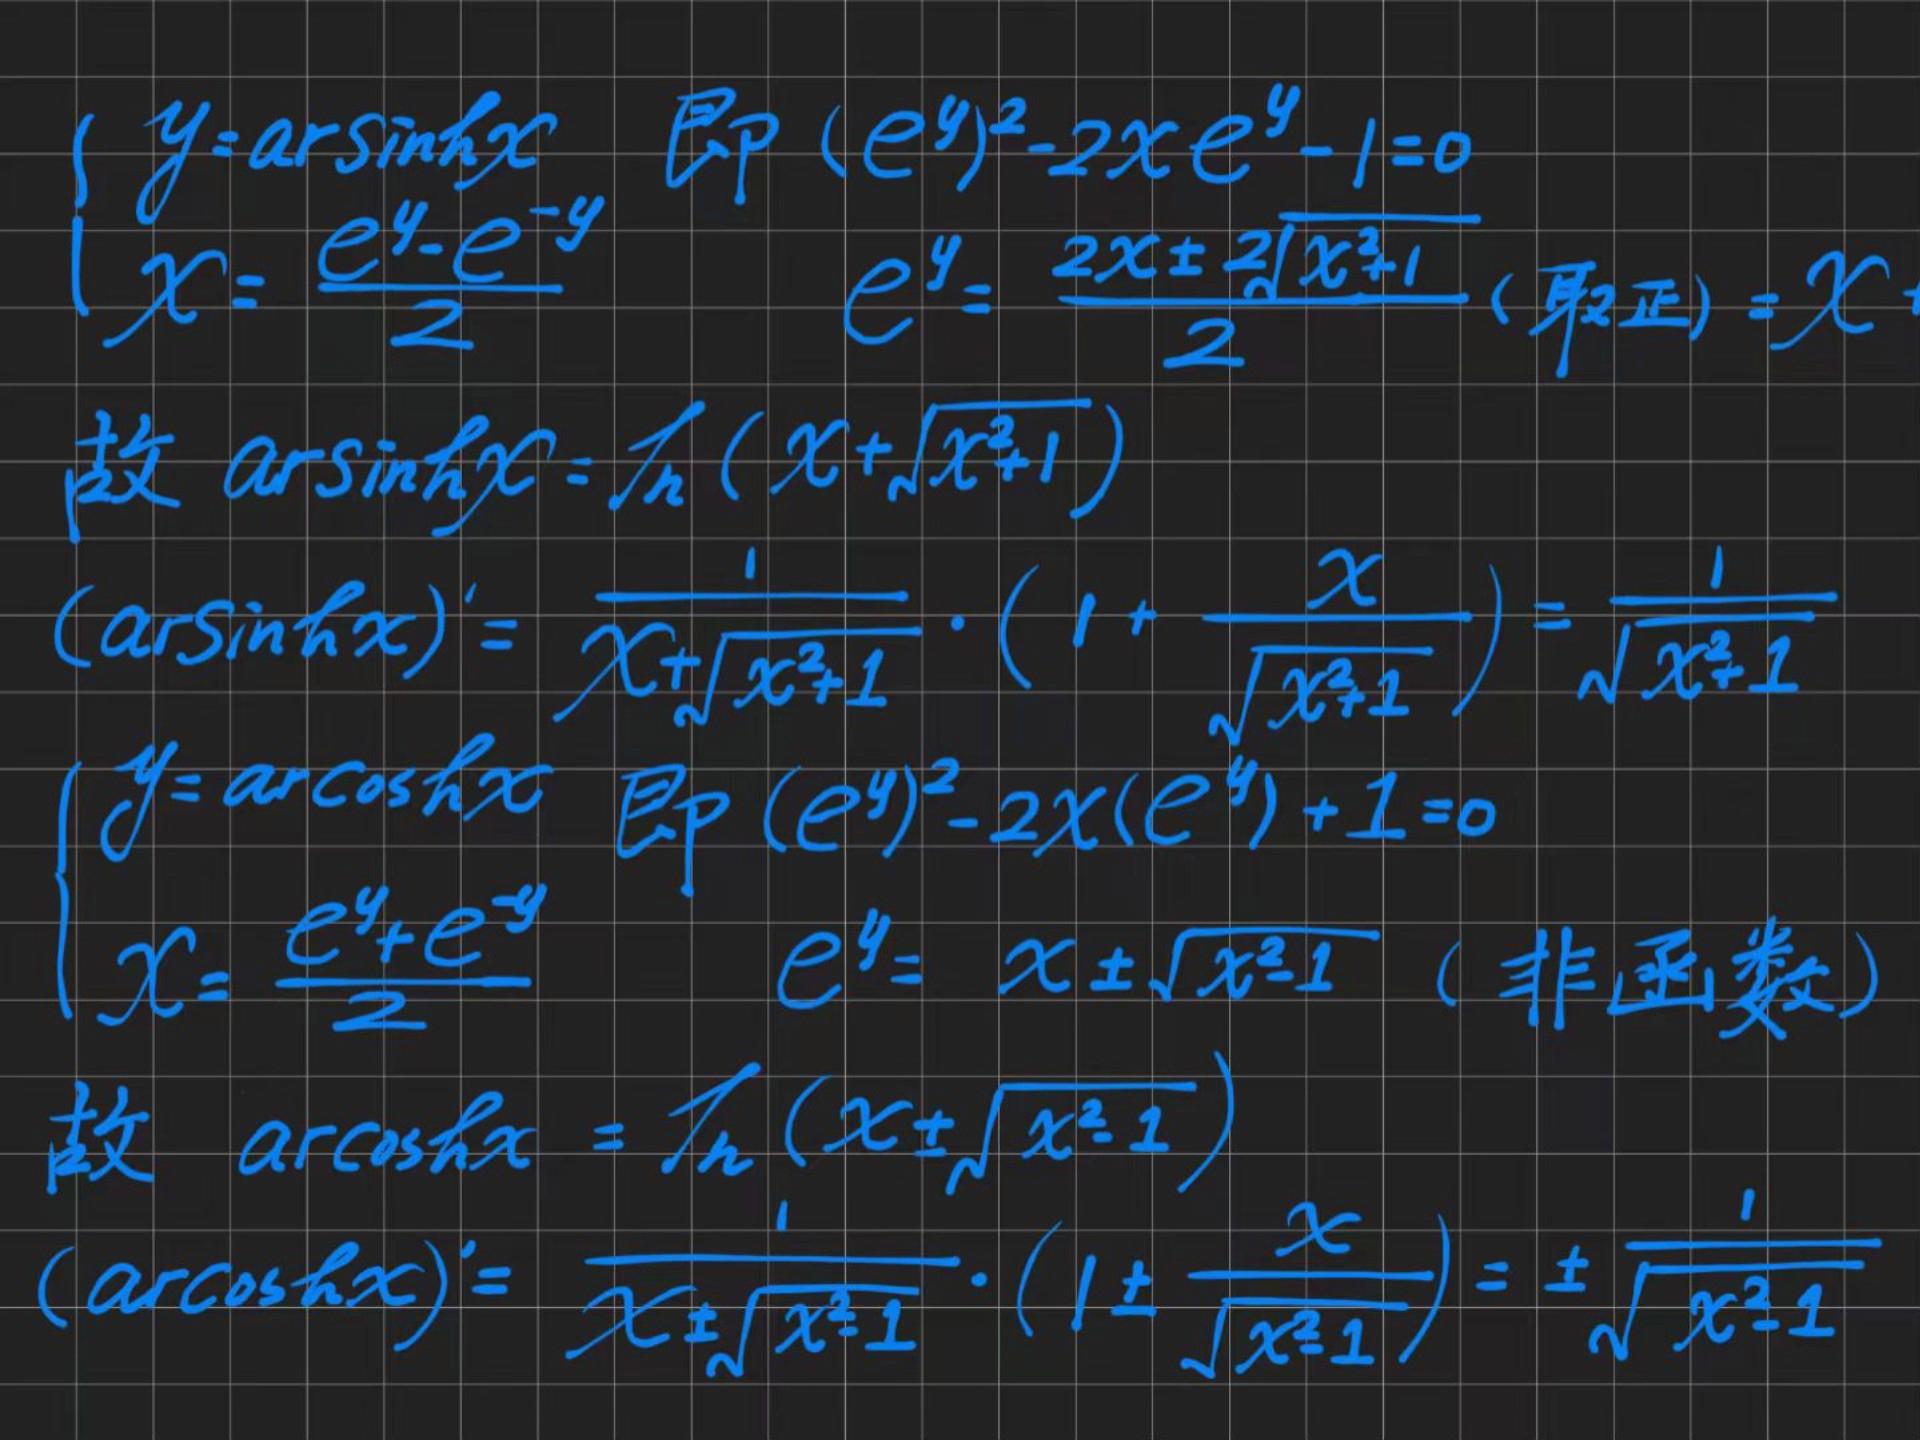 y=arsinhx 即 (e^y)²-2xe^y-1=0
x= (e^y-e^-y)/2 e^y= (2x±2√(x²+1))/2 (取正) =x+
故 arsinhx=ln(x+√(x²+1))
(arsinhx)'= 1/(x+√(x²+1)) · (1+ x/√(x²+1)) = 1/√(x²+1)
y=arcoshx 即 (e^y)²-2x(e^y)+1=0
x= (e^y+e^-y)/2 e^y= x±√(x²-1) (非函数)
故 arcoshx =ln(x±√(x²-1))
(arcoshx)'= 1/(x±√(x²-1)) · (1± x/√(x²-1)) = ± 1/√(x²-1)